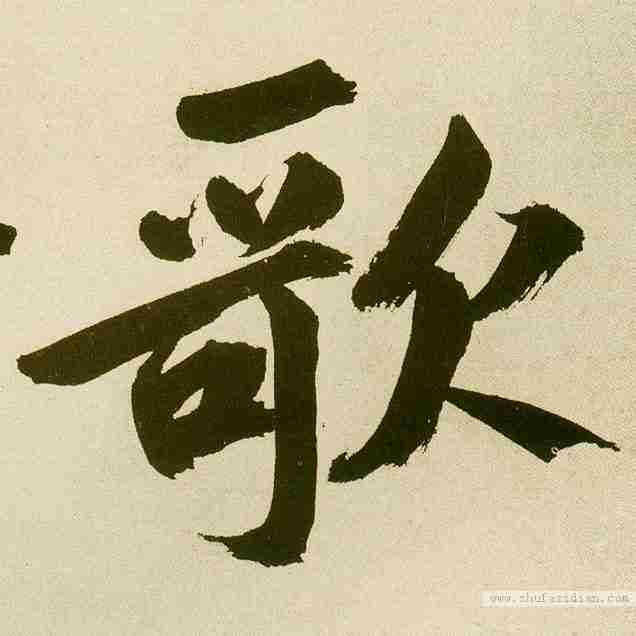 歌
www.shufazidian.com